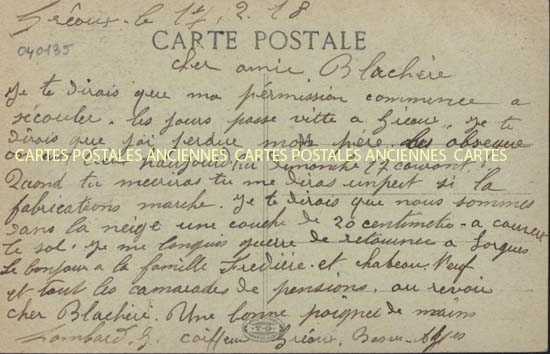 Gréoux. le 17, 2. 18
040135
CARTE POSTALE
cher amie Blachère
Je te dirais que ma permission commence a
sécouler. les jours passe vitte a Gréoux. Je te
dirais que j'ai perdue mon père. les obseque
dimanche 17 courant.
CARTES POSTALES ANCIENNES CARTES POSTALES ANCIENNES CARTES POSTALES ANCIENNES
Quand tu mecriras tu me diras unpeut si la
fabrications marche. Je te dirais que nous sommes
dans la neige une couche de 20 centimetre a couvert
le sol. Je me languis guerre de retourner a Sorgues
Le bonjour a la famille Fredière et chabeau. Neuf
et tout les camarades de pensions, au revoir
cher Blachère. Une bonne poignee de mains
Lombard. G. coiffeur Gréoux. Basses-Alpes